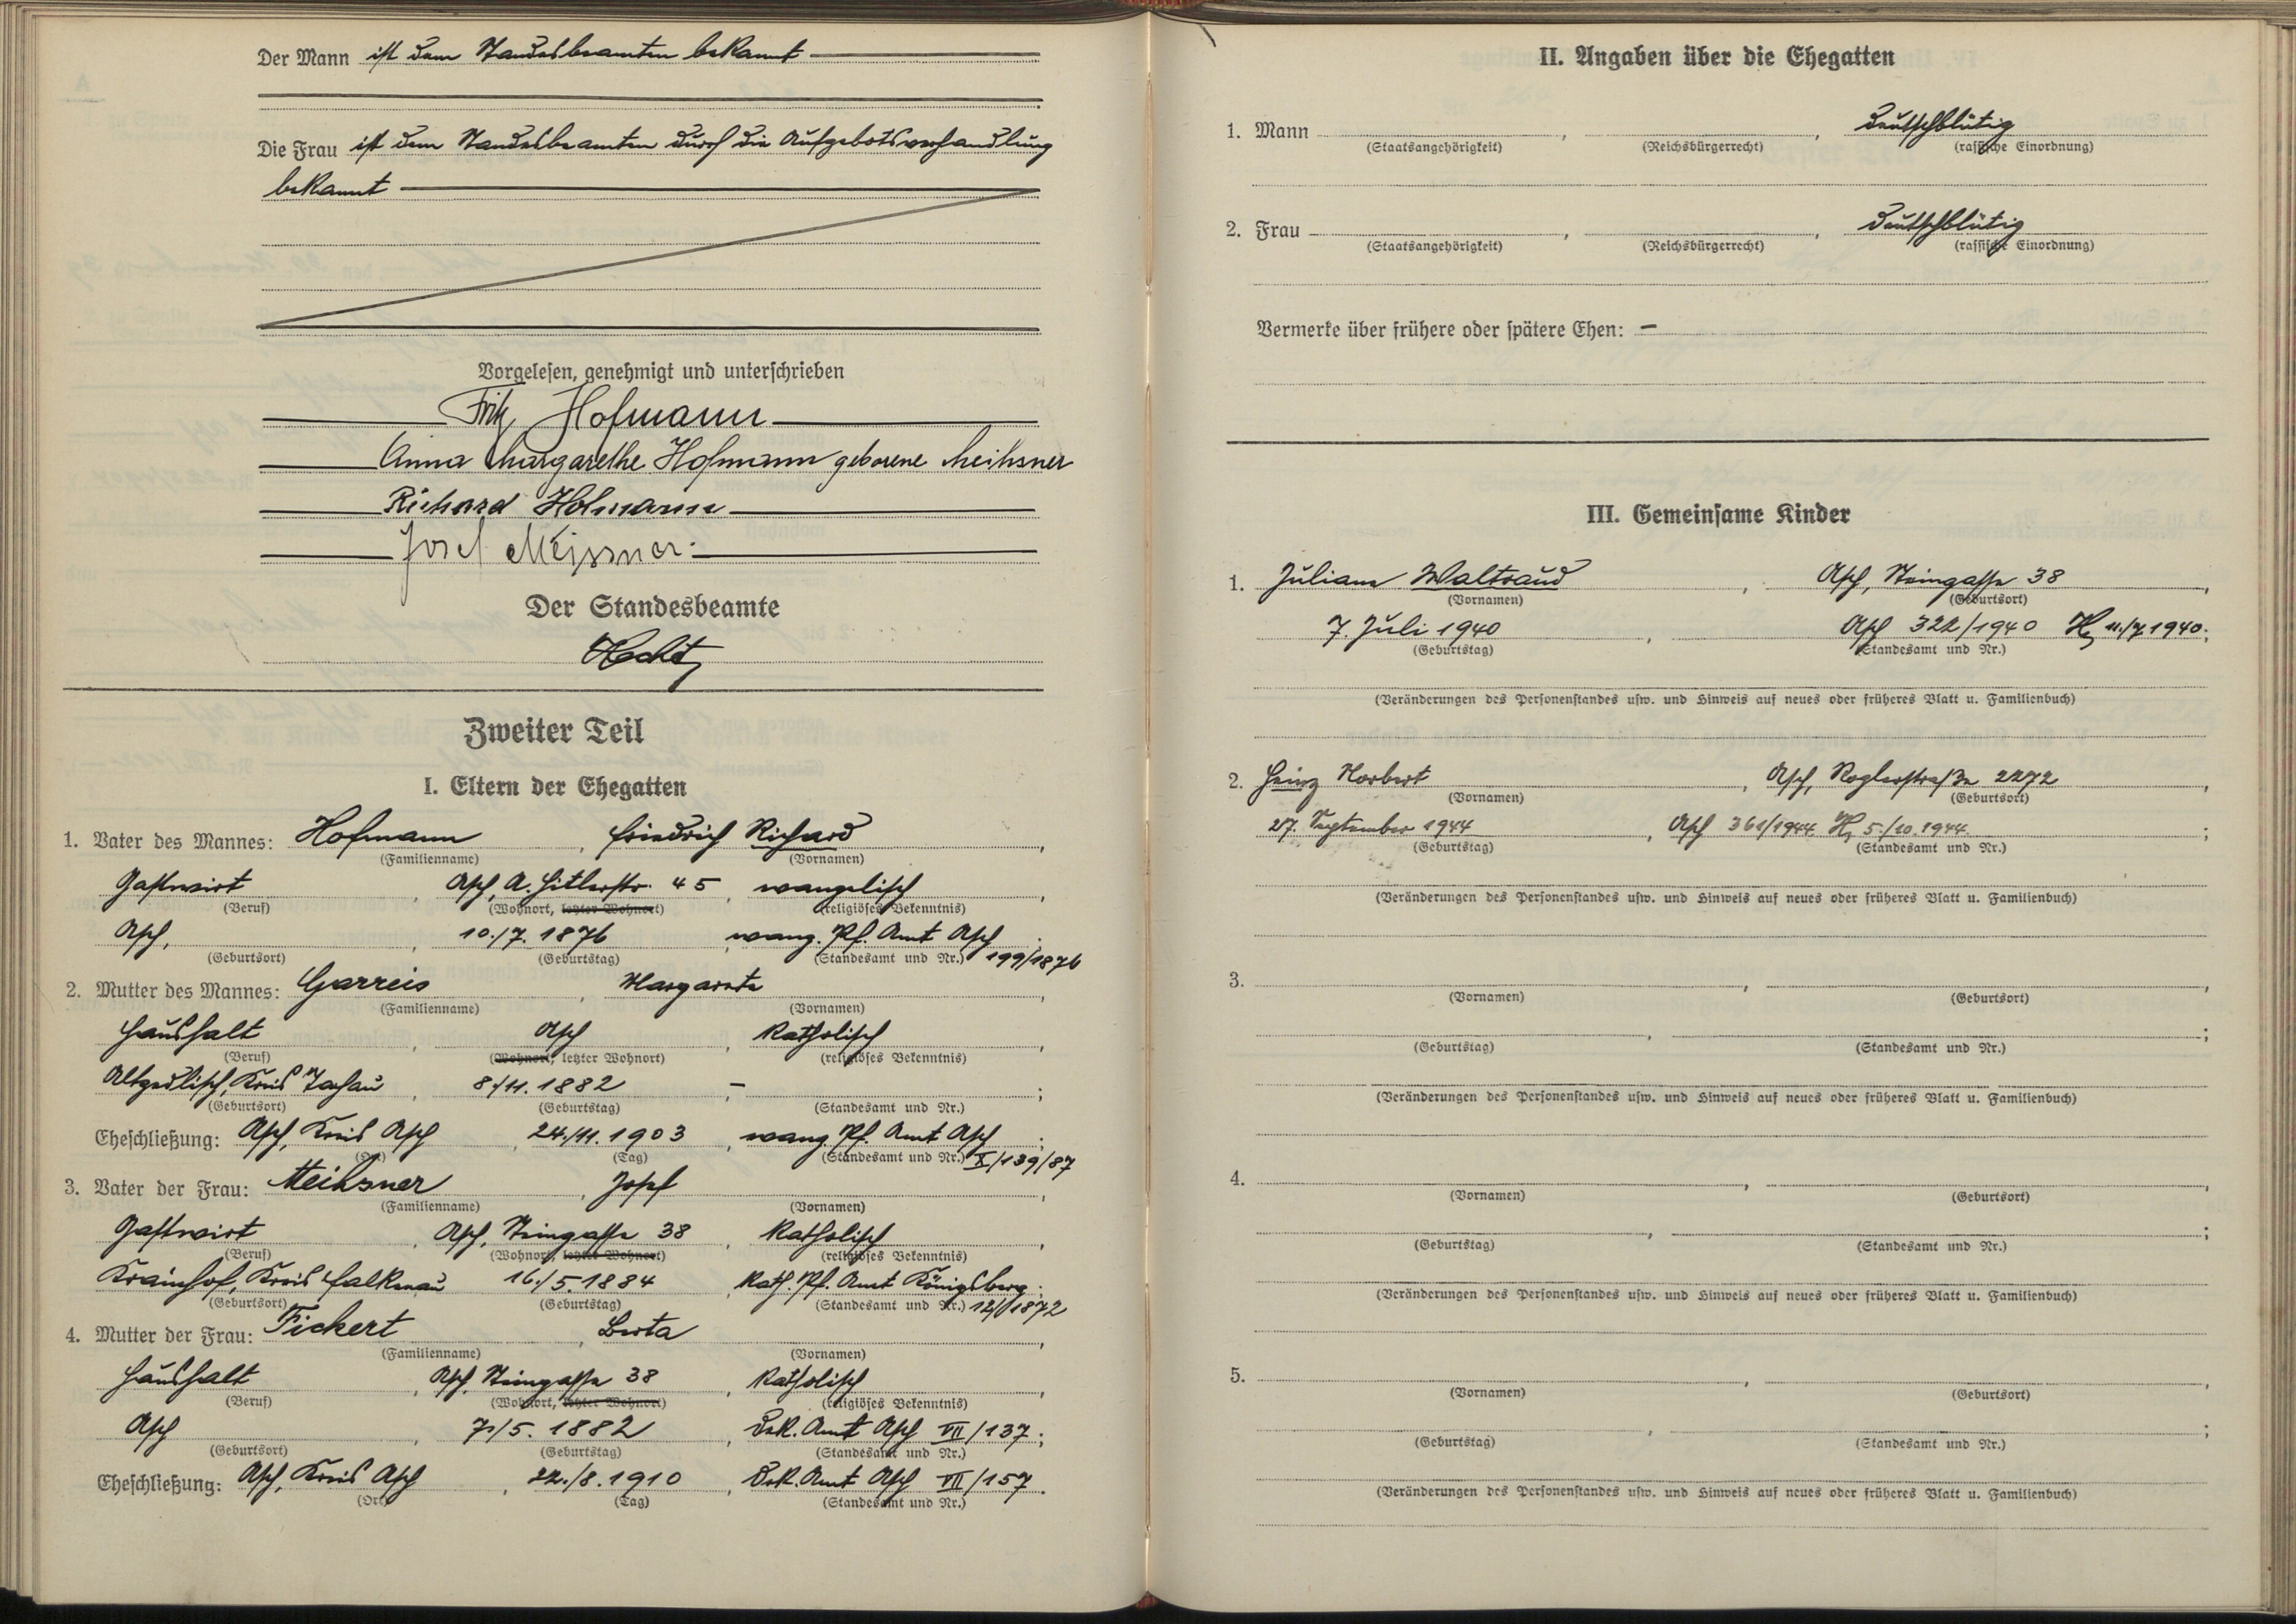 Der Mann ist dem Standesbeamten bekannt
Die Frau ist dem Standesbeamten durch die Aufgebotsverhandlung
bekannt
Vorgelesen, genehmigt und unterschrieben
Fritz Hofmann
Anna Margarethe Hofmann geborene Meihsner
Richard Hofmann
Josef Meissner
Der Standesbeamte
Zweiter Teil
I. Eltern der Ehegatten
1. Vater des Mannes: Hofmann, Friedrich Richard,
(Familienname) (Vornamen)
Gastwirt, Asch, A. Hitlerstr. 45, evangelisch,
(Beruf) (Wohnort, letzter Wohnort) (religiöses Bekenntnis)
Asch, 10./7. 1876, evang. Pf. Amt Asch;
(Geburtsort) (Geburtstag) (Standesamt und Nr.) 199/1876
2. Mutter des Mannes: Garreis, Margareta,
(Familienname) (Vornamen)
Haushalt, Asch, katholisch,
(Beruf) (Wohnort, letzter Wohnort) (religiöses Bekenntnis)
Altzedlisch, Kreis Tachau, 8./11. 1882, – ;
(Geburtsort) (Geburtstag) (Standesamt und Nr.)
Eheschließung: Asch, Kreis Asch, 24./11. 1903, evang. Pf. Amt Asch;
(Ort) (Tag) (Standesamt und Nr.) X/139/87
3. Vater der Frau: Meihsner, Josef,
(Familienname) (Vornamen)
Gastwirt, Asch, Steingasse 38, katholisch,
(Beruf) (Wohnort, letzter Wohnort) (religiöses Bekenntnis)
Krainhof, Kreis Falkenau 16./5. 1884, kath. Pf. Amt Königsberg;
(Geburtsort) (Geburtstag) (Standesamt und Nr.) 12/1872
4. Mutter der Frau: Fickert, Berta,
(Familienname) (Vornamen)
Haushalt, Asch, Steingasse 38, katholisch,
(Beruf) (Wohnort, letzter Wohnort) (religiöses Bekenntnis)
Asch, 7./5. 1882, Dek. Amt Asch VII/137;
(Geburtsort) (Geburtstag) (Standesamt und Nr.)
Eheschließung: Asch, Kreis Asch, 22./8. 1910, Dek. Amt Asch VII/157.
(Ort) (Tag) (Standesamt und Nr.)
II. Angaben über die Ehegatten
1. Mann , , deutschblütig
(Staatsangehörigkeit) (Reichsbürgerrecht) (rassische Einordnung)
2. Frau , , deutschblütig
(Staatsangehörigkeit) (Reichsbürgerrecht) (rassische Einordnung)
Vermerke über frühere oder spätere Ehen: –
III. Gemeinsame Kinder
1. Juliane Waltraud, Asch, Steingasse 38,
(Vornamen) (Geburtsort)
7. Juli 1940, Asch 322/1940 11./7. 1940;
(Geburtstag) (Standesamt und Nr.)
(Veränderungen des Personenstandes usw. und Hinweis auf neues oder früheres Blatt u. Familienbuch)
2. Heinz Norbert, Asch, Roglerstraße 2272,
(Vornamen) (Geburtsort)
27. September 1944, Asch 361/1944 5./10. 1944;
(Geburtstag) (Standesamt und Nr.)
(Veränderungen des Personenstandes usw. und Hinweis auf neues oder früheres Blatt u. Familienbuch)
3. , ,
(Vornamen) (Geburtsort)
, ;
(Geburtstag) (Standesamt und Nr.)
(Veränderungen des Personenstandes usw. und Hinweis auf neues oder früheres Blatt u. Familienbuch)
4. , ,
(Vornamen) (Geburtsort)
, ;
(Geburtstag) (Standesamt und Nr.)
(Veränderungen des Personenstandes usw. und Hinweis auf neues oder früheres Blatt u. Familienbuch)
5. , ,
(Vornamen) (Geburtsort)
, ;
(Geburtstag) (Standesamt und Nr.)
(Veränderungen des Personenstandes usw. und Hinweis auf neues oder früheres Blatt u. Familienbuch)